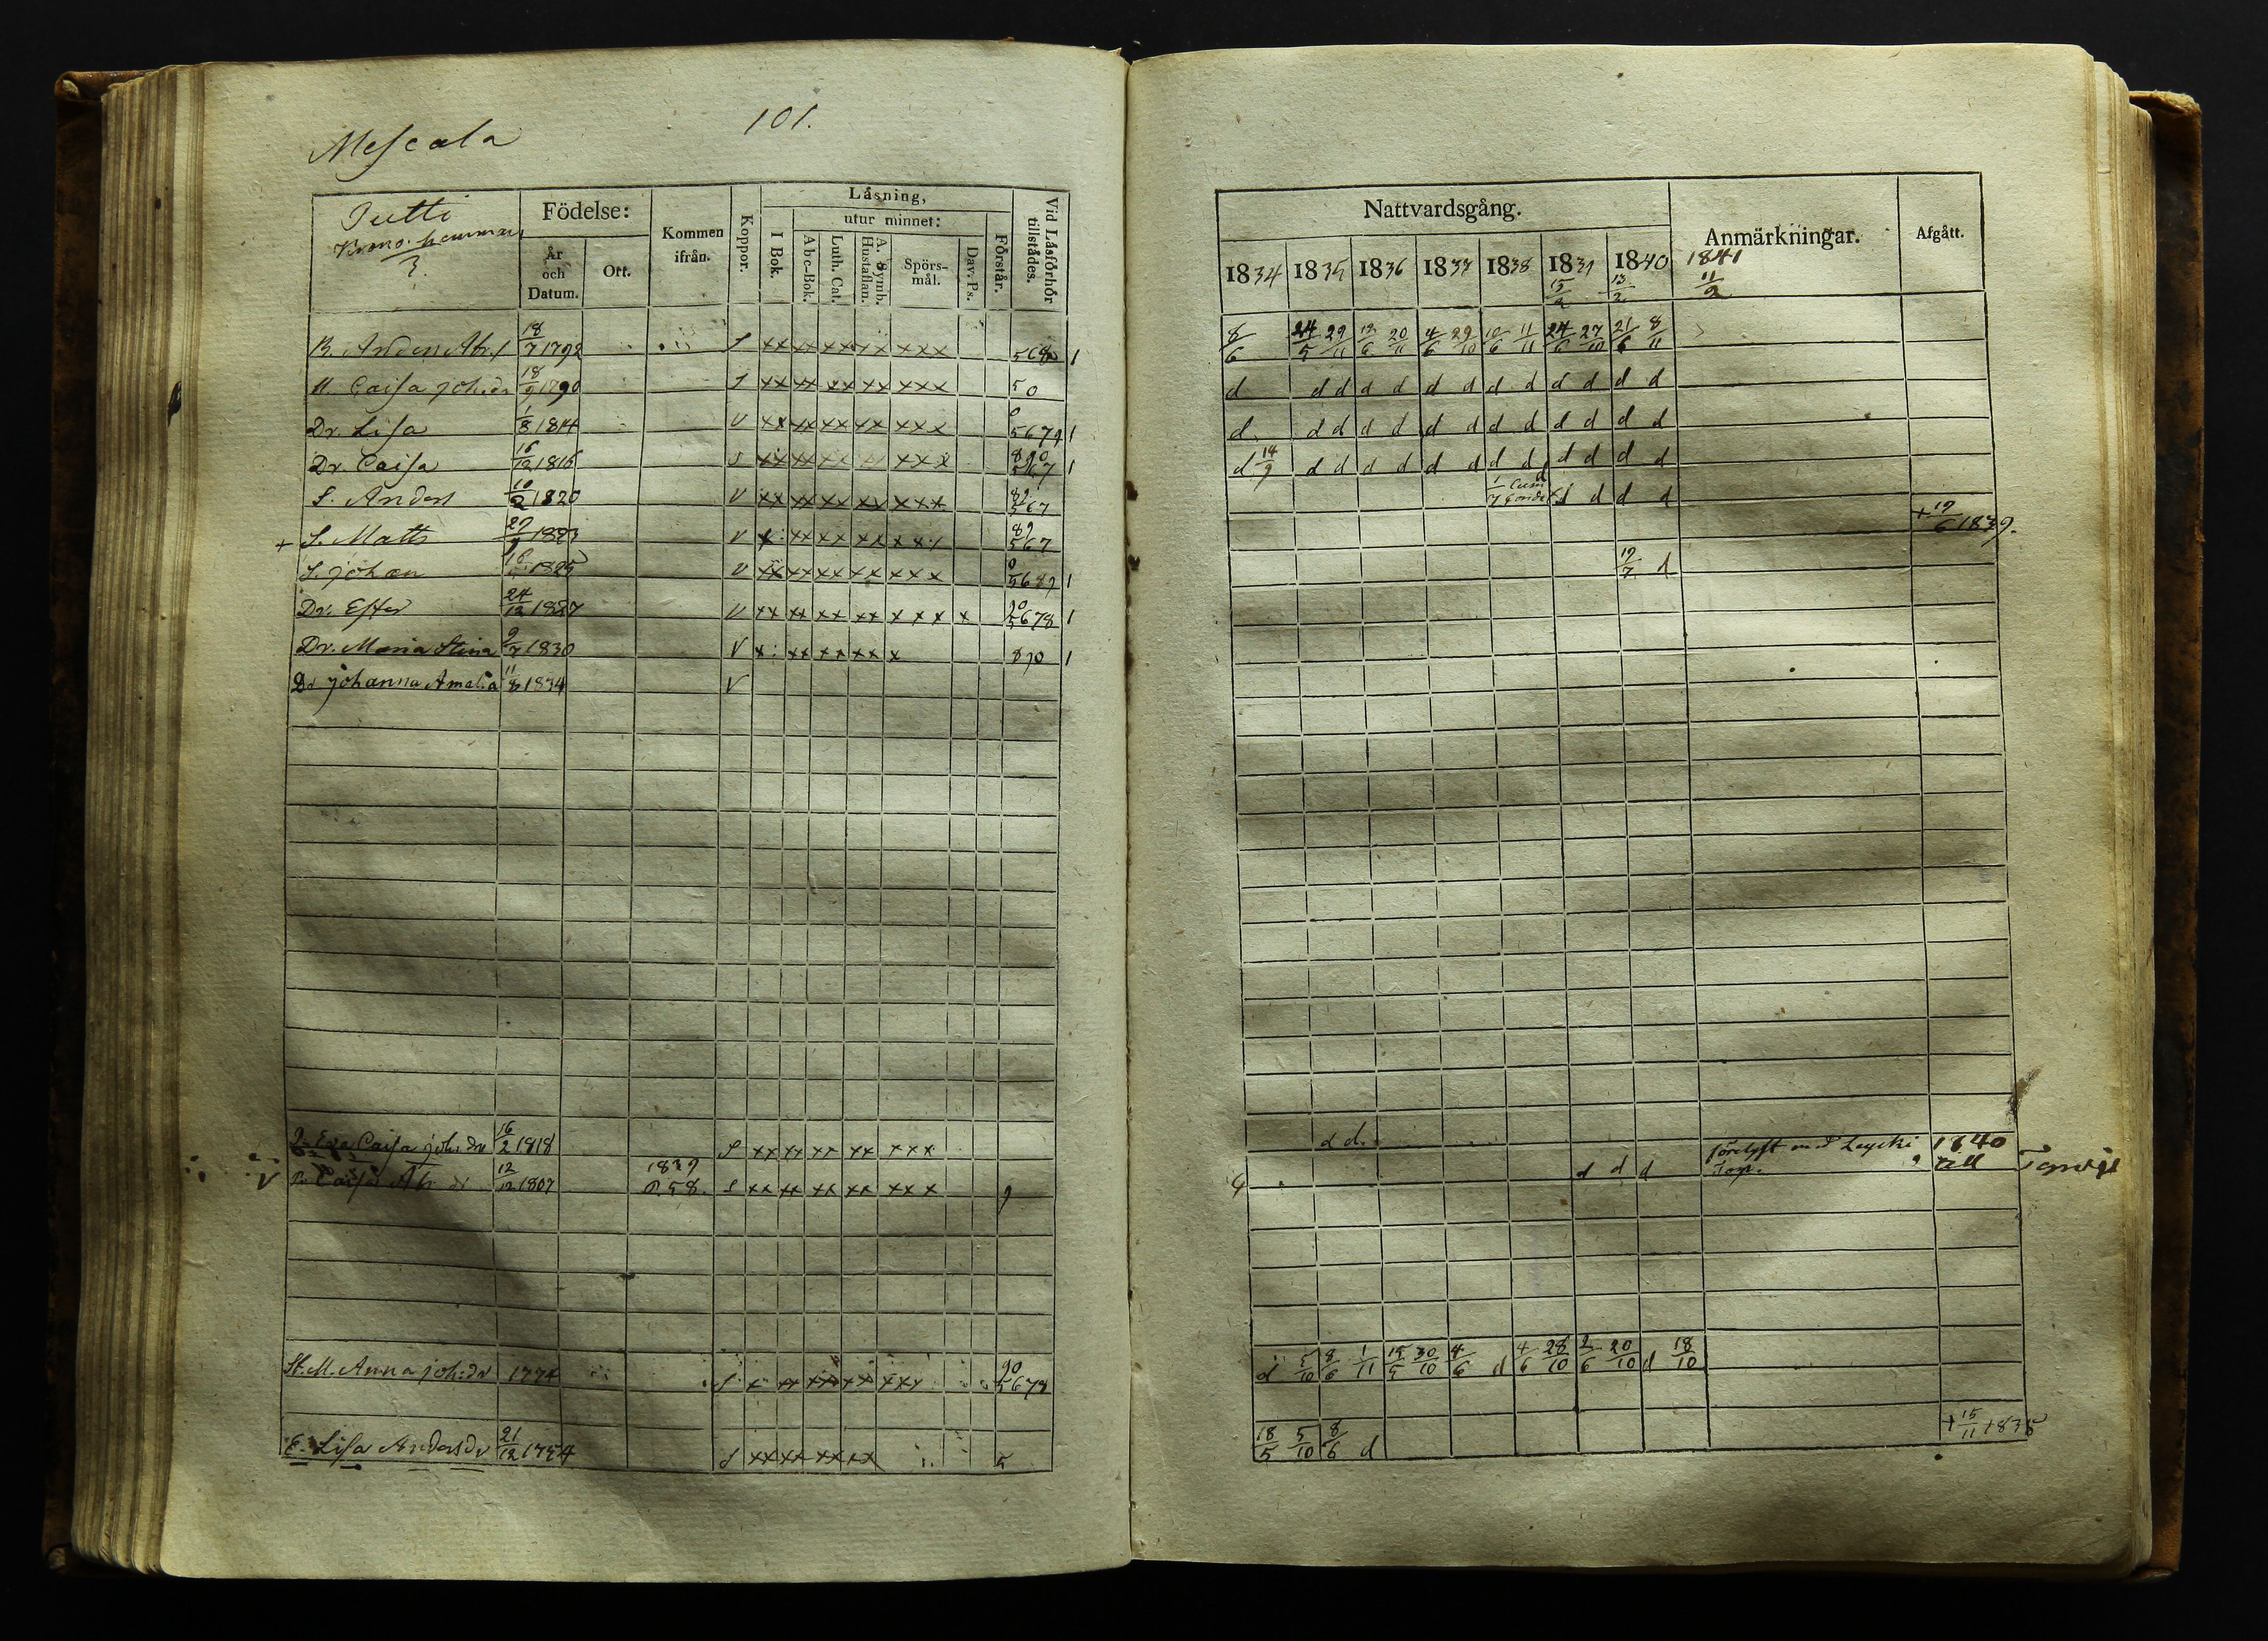 101.
Mescala
Jutti
Krono hemman
Födelse:
År och Datum.
Ort.
Kommen ifrån.
Koppor.
Läsning,
I Bok.
utur minnet:
Abc-Bok.
Luth. Cat.
A. Symb. Hustaflan.
Spörsmål.
Dav. Ps.
Förstår.
Vid Läsförhör tillstädes.
B. Anders Abr. 18/7 1792 S xx xx xx xx xxx
H. Caisa Joh:dr 18/9 1790 S xx xx xx xx xxx 50
Dr. Lisa 1/8 1814 V xx xx xx xx xxx 5679 1
Dr. Caisa 16/12 1816 S xx xx xx xx xxx 890 567 1
S. Anders 10/2 1820 V xx xx xx xx xxx 567
+ S. Matts 1823 V x: xx xx xx 89 567
S. Johan 1825 V xx xx xx xx xxx 0 5689 1
Dr. Ester 24/12 1827 V xx xx xx xx xxx x 90 5678 1
Dr. Maria Stina 9/7 1830 V x: xx xx xx x 890 1
Dr Johanna Amalia 11/8 1834 V
Eva Caisa Joh: dr 16/2 1818 S xx xx xx xx xxx
V Pr Caisa Ab: dr 12/12 1807 1839 P. 58. S xx xx xx xx xxx 9
St. M. Anna Joh:dr 1774 S x xx xx xx xxx 90 5678
E. Lisa Andersdr 21/12 1754 S xx xx xx xx 5
Nattvardsgång.
Anmärkningar.
Afgått.
1834 1835 1836 1837 1838 1839 1840 1841
13/2 11/2
8/6 24/5 29/11 12/6 20/11 4/6 29/10 10/6 11/11 24/6 27/10 21/6 8/11
d d d d d d d d d d d d d
d. d d d d d d d d d d d d
d 14/9 d d d d d d d d d d d d
d d d d
+ 19/6 1839.
19/7 d
d d. 1840
d d d till
d 5/10 8/6 1/11 15/5 30/10 4/6 d 4/6 28/10 2/6 20/10 d 18/10
18/5 5/10 8/6 d + 15/11 1835